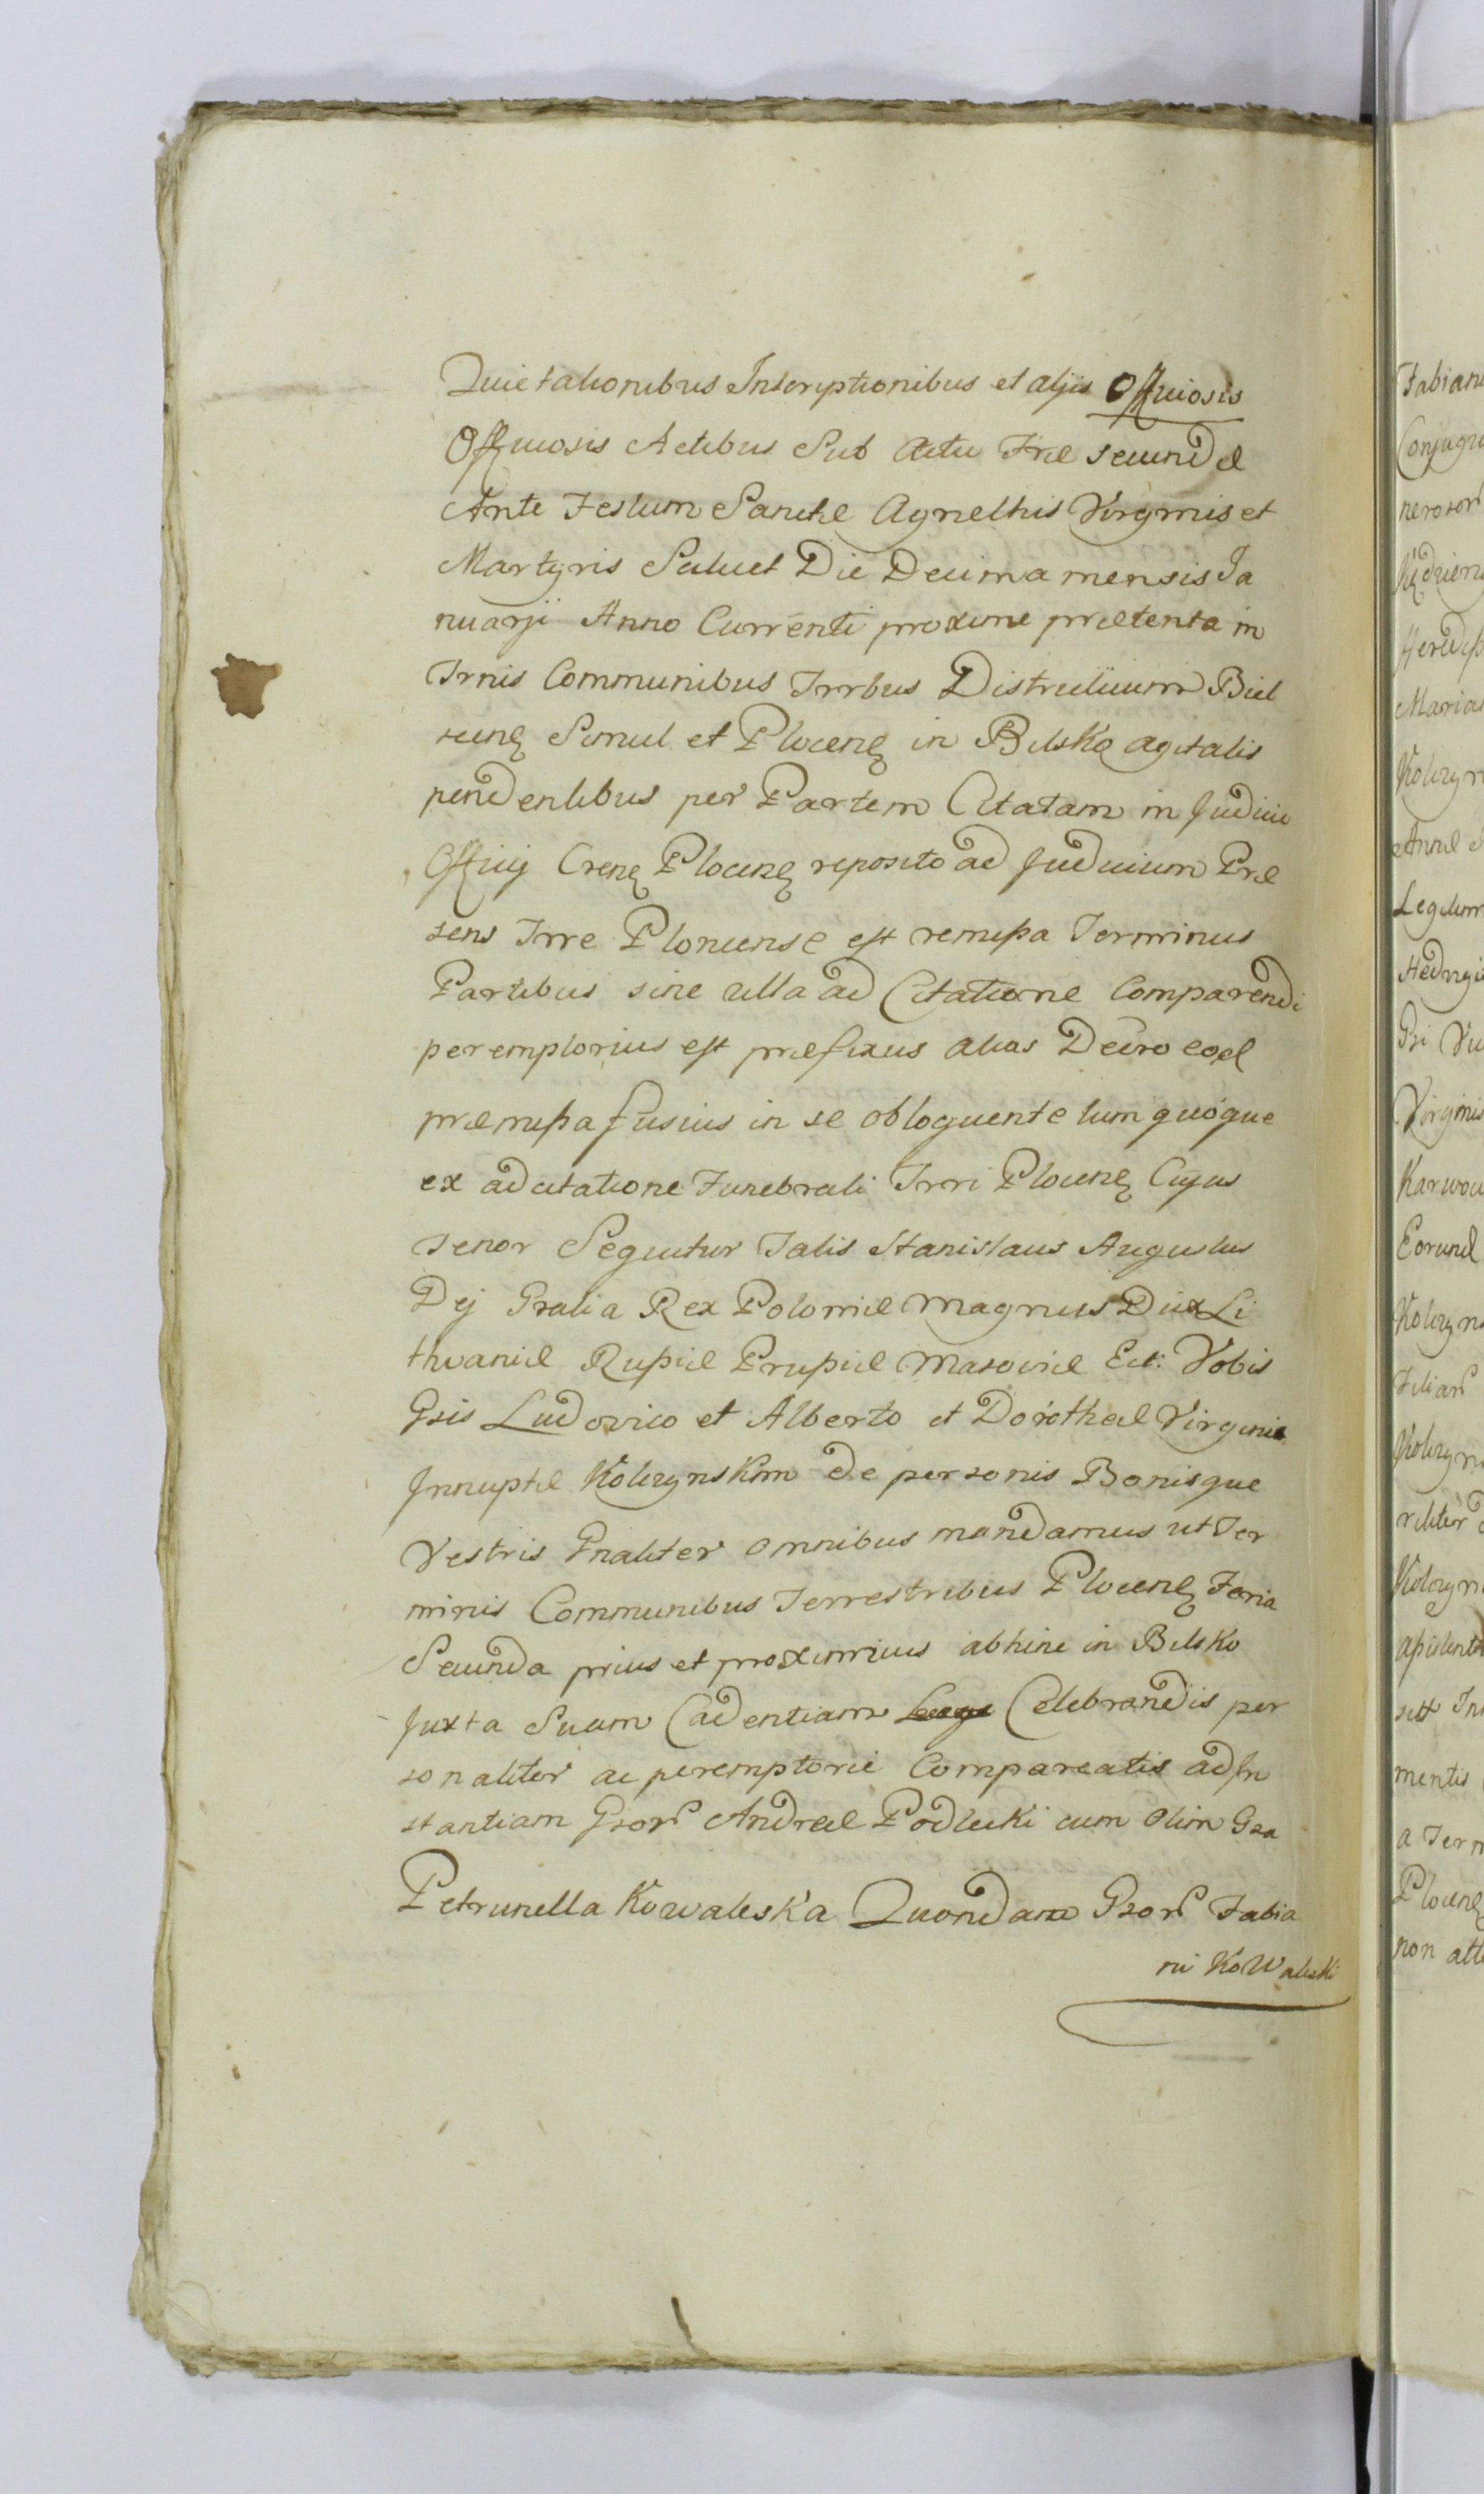 Quietationibus Inscriptionibus et alijs Officiosis
Officiosis Actibus Sub Actu Fræ secundæ
Ante Festum Sanctæ Agnethis Virginis et
Martyris Scilicet Die Decima mensis Ja
nuarji Anno Currenti proxime præterita in
Trnis Communibus Trrbus Districtuum Biel
scen Simul et Plocen in Bielsko agitatis
pendentibus per Partem Citatam in Judicio
Officij Cren Plocen reposito ad Judicium Præ
sens Trre Plonense est remissa Terminus
Partibus sine ulla ad Citatione Comparendi
peremptorius est præfixus alias Decro eod
præmissa fusius in se obloquente tum quoque
ex adcitatione Funebrali Trri Plocen Cujus
Tenor Sequitur Talis Stanislaus Augustus
Dej Gratia Rex Poloniæ Magnus Dux Li
thvaniæ Russiæ Prussiæ Masoviæ Ect: Vobis
Gsis Ludovico et Alberto et Dorotheæ Virgini
Innuptæ Kolczynskim de personis Bonisque
Vestris Gnaliter omnibus mandamus ut Ter
minis Communibus Terrestribus Plocen Feria
Secunda prius et proximius abhinc in Bilsko
Juxta Suam Cadentiam Celebrandis per
sonaliter ac peremptorie Compareatis ad In
stantiam Gsor Andreæ Podlecki cum olim Gsa
Petrunella Kowaleska Quondam Gsor Fabia
ni KoWaleski
Fabian
Conjugu
neroson
Maria
Kolczyn
Annæ
Legitim
Hedvigi
Virginis
Karwow
Eorund
Kolczyn
Filiar
Kolczyn
Kolczyn
mentis
a Term
Plocen
non att